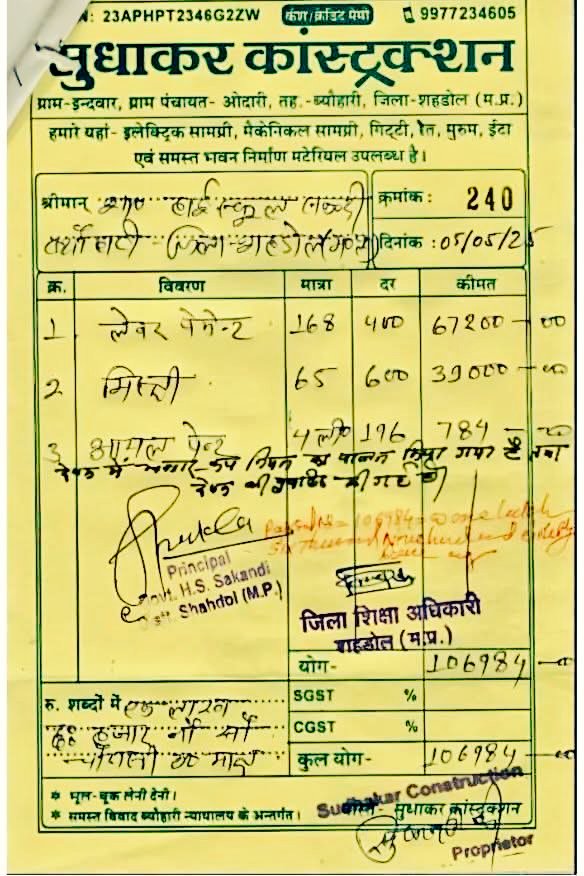 N: 23APHPT2346G2ZW कैश/क्रेडिट मेमो 9977234605
सुधाकर कांस्ट्रक्शन
ग्राम-इन्दवार, ग्राम पंचायत- ओदारी, तह.-ब्यौहारी, जिला-शहडोल (म.प्र.)
हमारे यहां- इलेक्ट्रिक सामग्री, मैकेनिकल सामग्री, गिट्टी, रेत, मुरुम, ईटा
एवं समस्त भवन निर्माण मटेरियल उपलब्ध है।
श्रीमान् हाई स्कूल सकन्दी क्रमांक: 240
जिला-शहडोल (म०प्र०) दिनांक : 05/05/25
क्र. विवरण मात्रा दर कीमत
1 लेवर पेमेन्ट 168 400 67200-00
2 मिस्त्री 65 600 39000-00
3 आयल पेन्ट 4 ली० 196 784-00
नियम का पालन किया गया है तथा
की गई
Principal
Govt. H.S. Sakandi
Distt. Shahdol (M.P.)
Passed Rs 106984=00 one lakh
six thousand nine hundred and eighty
four
जिला शिक्षा अधिकारी
शहडोल (म.प्र.)
योग- 106984-00
रु. शब्दों में एक लाख SGST %
छः हजार नौ सौ CGST %
चौरासी रू मात्र कुल योग- 106984-00
* भूल-चूक लेनी देनी।
* समस्त विवाद ब्यौहारी न्यायालय के अन्तर्गत।
Sudhakar Construction
वास्ते- सुधाकर कांस्ट्रक्शन
Proprietor